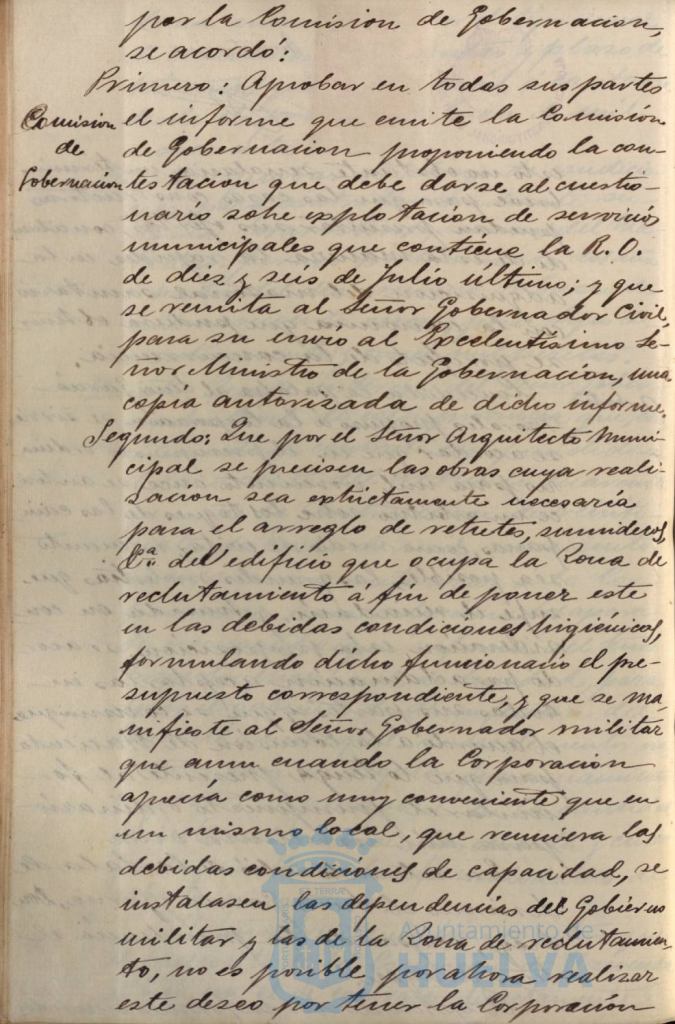 por la Comision de Gobernacion,
se acordó:
Primero: Aprobar en todas sus partes
Comision
de
Gobernacion
el informe que emite la Comisión
de Gobernacion proponiendo la con-
testacion que debe darse al cuestio-
nario sobe explotacion de servicios
municipales que contiene la R. O.
de diez y seis de Julio último; y que
se remita al Señor Gobernador Civil,
para su envío al Excelentísimo Se-
ñor Ministro de la Gobernacion, una
copia autorizada de dicho informe.
Segundo: Que por el Señor Arquitecto Muni-
cipal se precisen las obras cuya reali-
zacion sea estrictamente necesaria
para el arreglo de retretes, sumideros,
&ª del edificio que ocupa la Zona de
reclutamiento á fin de poner este
en las debidas condiciones higiénicas,
formulando dicho funcionario el pre-
supuesto correspondiente, y que se ma-
nifieste al Señor Gobernador militar
que aun cuando la Corporacion
aprecia como muy conveniente que en
un mismo local, que reuniera las
debidas condiciones de capacidad, se
instalasen las dependencias del Gobierno
militar y las de la Zona de reclutamien-
to, no es posible por ahora realizar
este deseo por tener la Corporación
Ayuntamiento de
HUELVA